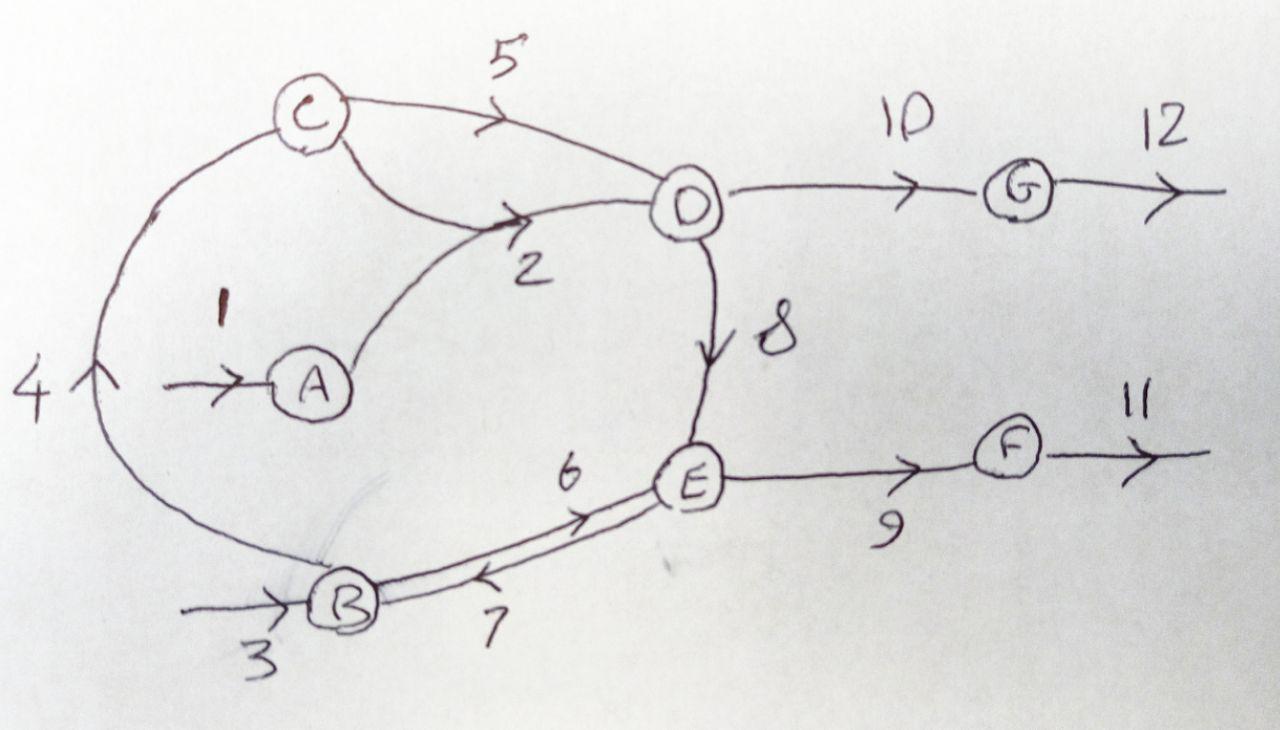 5
C
10
12
D
G
2
1
8
4
A
11
6
F
E
9
B
7
3